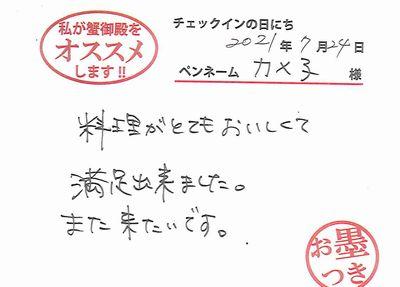 私が蟹御殿を
オススメ
します!!
チェックインの日にち
2021年7月24日
ペンネーム カメ子 様
料理がとてもおいしくて
満足出来ました。
また来たいです。
お墨
つき